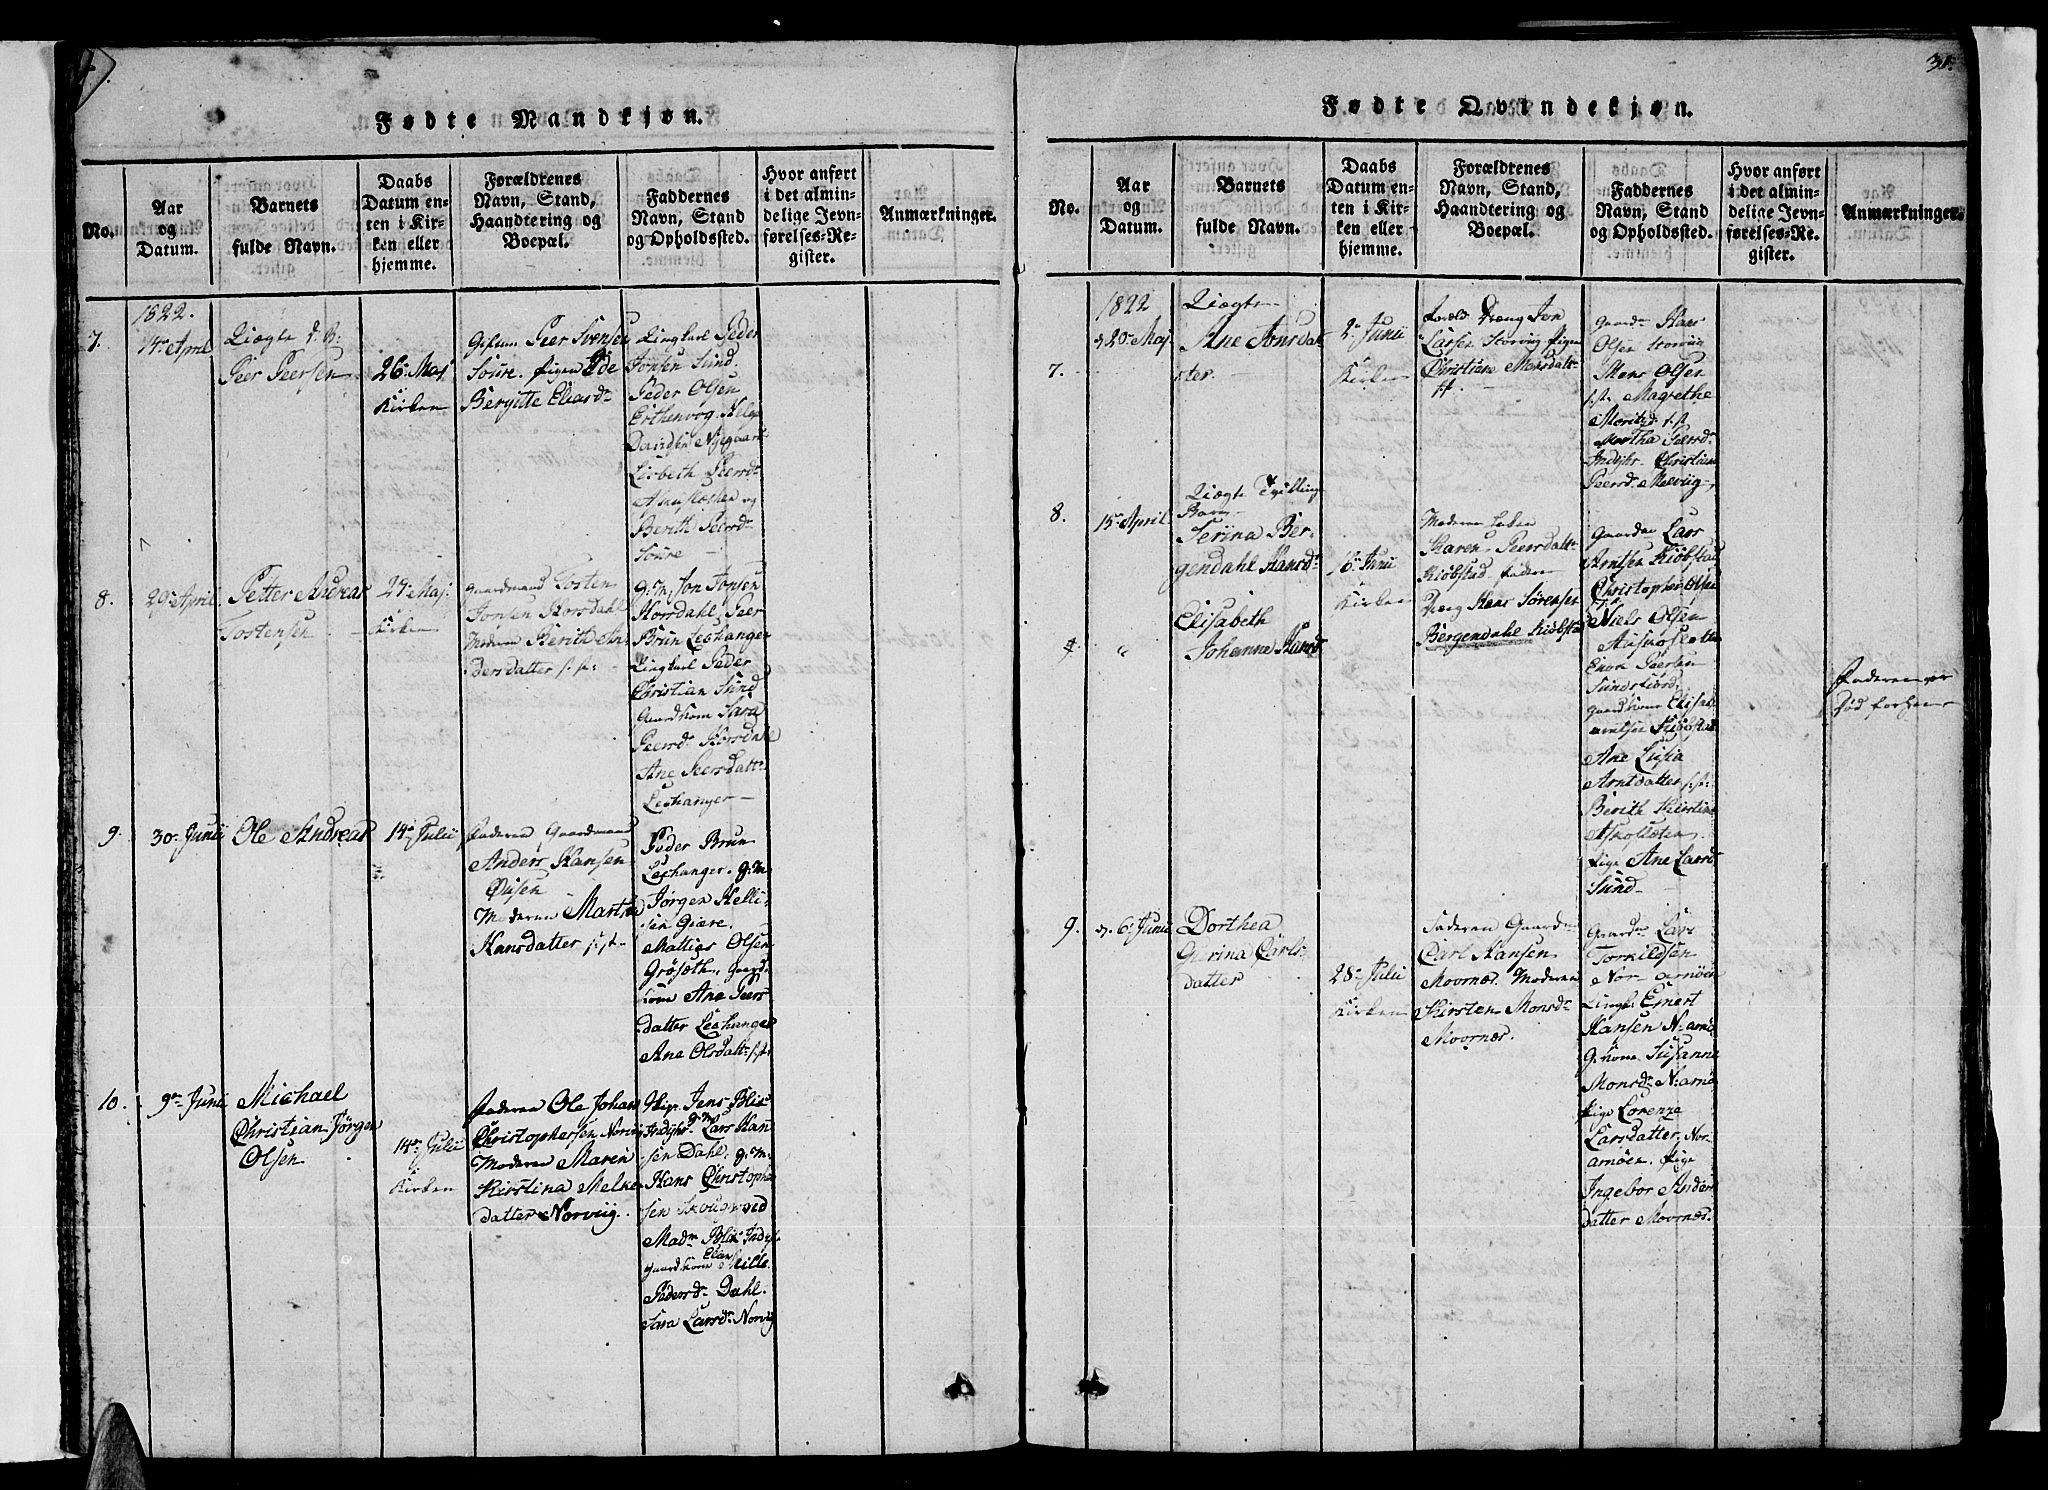 Fødte Mandkjøn.
No.
Aar
og
Datum.
Barnets
fulde Navn.
Daabs
Datum en-
ten i Kir-
ken eller
hjemme.
Forældrenes
Navn, Stand,
Haandtering og
Boepæl.
Faddernes
Navn, Stand
og Opholdssted.
Hvor anført
i det almin-
delige Jevn-
førelses-Re-
gister.
Anmærkninger.
1822.
7.
14de April
Uægte
Peer Peersen
26. Maj
Kirken
Peer Svensen
Soure. Pigen
Bergitte Eliasd.
Ungkarl Peder
Jonsen Sund.
Peder Olsen
Davidsen Nygaard
Lisbeth Peersd.
og
Berith Peersd.
Soure
8.
29. April
Petter Andreas
Tostensen
27. Maj
Kirken
gaardmand Tosten
Jonsen Horsdahl
Moderen Berith An-
dersdatter s: st:
g: M: Jon Jonsen
Horsdahl, Peer
Brun Leehanger
Ungkarl Peder
Christian Sund
gaardkone Sara
Peersd. Horsdahl
Ane Peersdatt.
Leehanger
9.
30. Junii
Ole Andreas
14. Julii
Faderen Gaardmand
Anders Hansen
Øüsen
Moderen Martha
Hansdatter s: st:
Peder Brun
Leehanger. g: M.
Jørgen Helli-
sen Giære.
Mattias Olsen
Grøsæth. gaard-
kone Ane Peers-
datter Leehanger
Ane Olsdatt. s: st:
10.
9. Junii
Michael
Christian Jørgen
Olsen
14. Julii
Kirken
Faderen Ole Johan
Christophersen Norviig
Moderen Maren
Kirstina Melke-
datter Norviig.
Jens Blix
Indyhr g: M Lars Han
sen Dahl. g: M:
Hans Christopher-
sen
Madm Blix Indyhr
gaardkone Elen Mille
Pedersd. Dahl.
Sara Larsd. Norvig
31.
Fødte Qvindekjøn.
No.
Aar
og
Datum.
Barnets
fulde Navn.
Daabs
Datum en-
ten i Kir-
ken eller
hjemme.
Forældrenes
Navn, Stand,
Haandtering og
Boepæl.
Faddernes
Navn, Stand
og Opholdssted.
Hvor anført
i det almin-
delige Jevn-
førelses-Re-
gister.
Anmærkninger.
1822
7.
d 20. Maj
Uægte
Ane Jonsdat
ter.
2. Junii
Kirken
Foræld. Dreng Jon
Larsen Storviig Pigen
Christine Monsdatt.
s: st:
Gaardm. Hans
Olsen Storviig
Mons Olsen
s: st: Magrethe
Moritsd. s: st
Martha Peersd.
Indyhr. Christiane
Peersd. Melviig
8.
15. April
Uægte Tvilling
Børn
Serina Ber-
gendahl Hansd.
16. Junii
Kirken
Moderen Enken
Karen Peersdatt.
Kiøbstad. Faderen
Dreng Hans Sörensen
Bergendahl Kiöbstad
Gaardm. Lars
Arntsen Kiöbstad
Christopher Olsen
Niels Olsen
Peersen
Sundsfiord,
gaardkone Elisab.
Kiöbstad
Ane Lusia
Arntdatter s: st:
Berith Kirstine
Pige Ane Larsd
Sund
"
Elisabeth
Johanne Hansd
Faderen er
død forhen
9.
d. 6. Junii
Dorthea
Gurina Carls-
datter
28. Julii
Kirken
Faderen Gaardm.
Carl Hansen
Movrnæs. Moderen
Kirsten Monsd.
Movrnæs.
Gaardm. Lars
Torkildsen
Nor Arnöen
Ungk: Ernert
Hansen N: arnö
G: kone Susanne
Monsd. N: arnö
Pige Lorenze
Larsdatter. Nor-
arnöen. Pige
Ingebor Anders
datter Movrnæs.